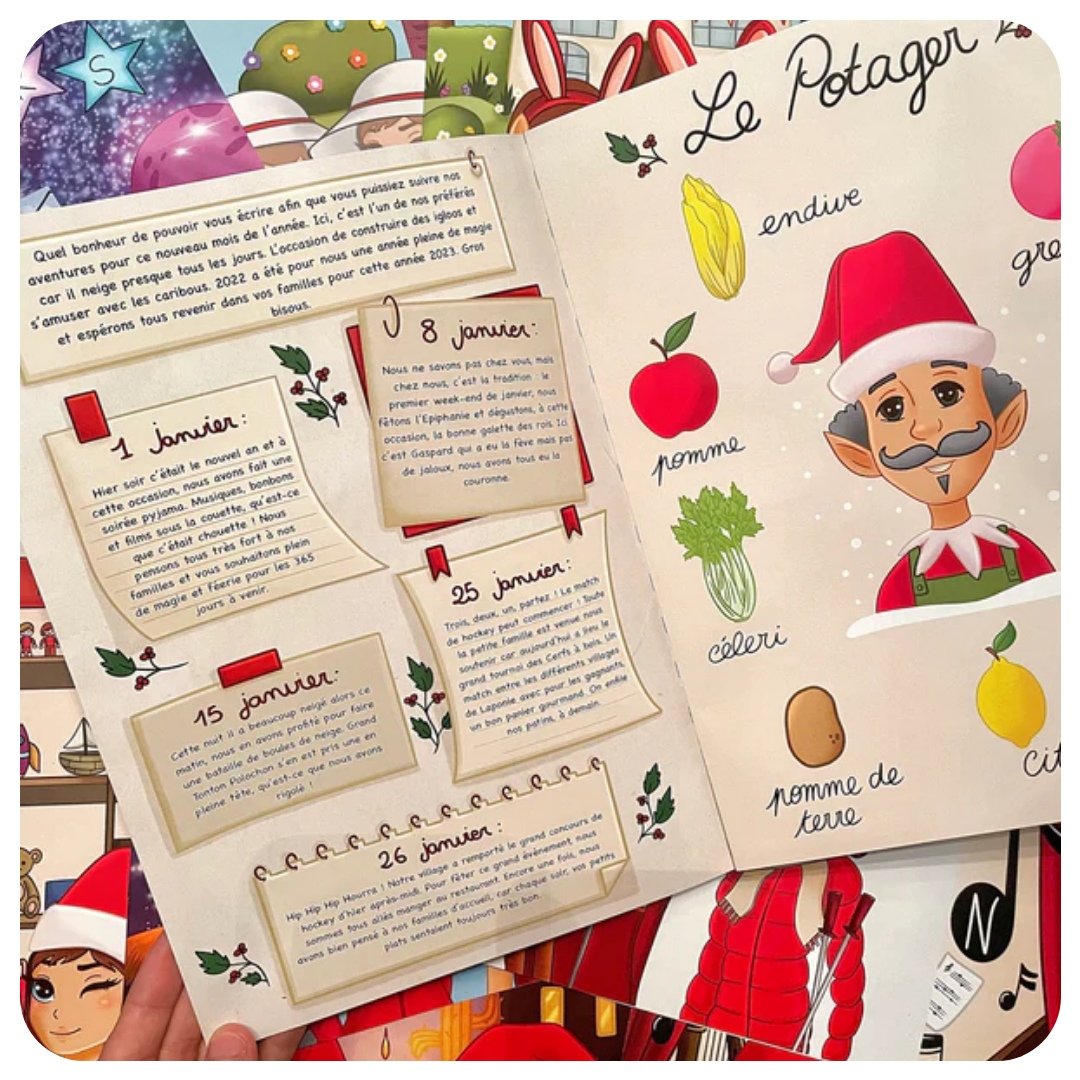 S
Quel bonheur de pouvoir vous écrire afin que vous puissiez suivre nos
aventures pour ce nouveau mois de l'année. Ici, c'est l'un de nos préférés
car il neige presque tous les jours. L'occasion de construire des igloos et
s'amuser avec les caribous. 2022 a été pour nous une année pleine de magie
et espérons tous revenir dans vos familles pour cette année 2023. Gros
bisous.
1 janvier :
Hier soir c'était le nouvel an et à
cette occasion, nous avons fait une
soirée pyjama. Musiques, bonbons
et films sous la couette, qu'est-ce
que c'était chouette ! Nous
pensons tous très fort à nos
familles et vous souhaitons plein
de magie et féerie pour les 365
jours à venir.
8 janvier :
Nous ne savons pas chez vous, mais
chez nous, c'est la tradition : le
premier week-end de janvier, nous
fêtons l'Epiphanie et dégustons, à cette
occasion, la bonne galette des rois. Ici
c'est Gaspard qui a eu la fève mais pas
de jaloux, nous avons tous eu la
couronne.
15 janvier :
Cette nuit il a beaucoup neigé alors ce
matin, nous en avons profité pour faire
une bataille de boules de neige. Grand
Tonton Polochon s'en est pris une en
pleine tête, qu'est-ce que nous avons
rigolé !
25 janvier :
Trois, deux, un, partez ! Le match
de hockey peut commencer ! Toute
la petite famille est venue nous
soutenir car aujourd'hui a lieu le
grand tournoi des Cerfs à bois. Un
match entre les différents villages
de Laponie avec pour les gagnants,
un bon panier gourmand. On enfile
nos patins, à demain.
26 janvier :
Hip Hip Hip Hourra ! Notre village a remporté le grand concours de
hockey d'hier après-midi. Pour fêter ce grand évènement, nous
sommes tous allés manger au restaurant. Encore une fois, nous
avons bien pensé à nos familles d'accueil, car chaque soir, vos petits
plats sentaient toujours très bon.
Le Potager
endive
gre
pomme
céleri
pomme de
terre
cit
N